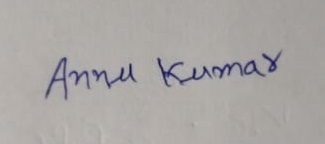 Annu Kumar